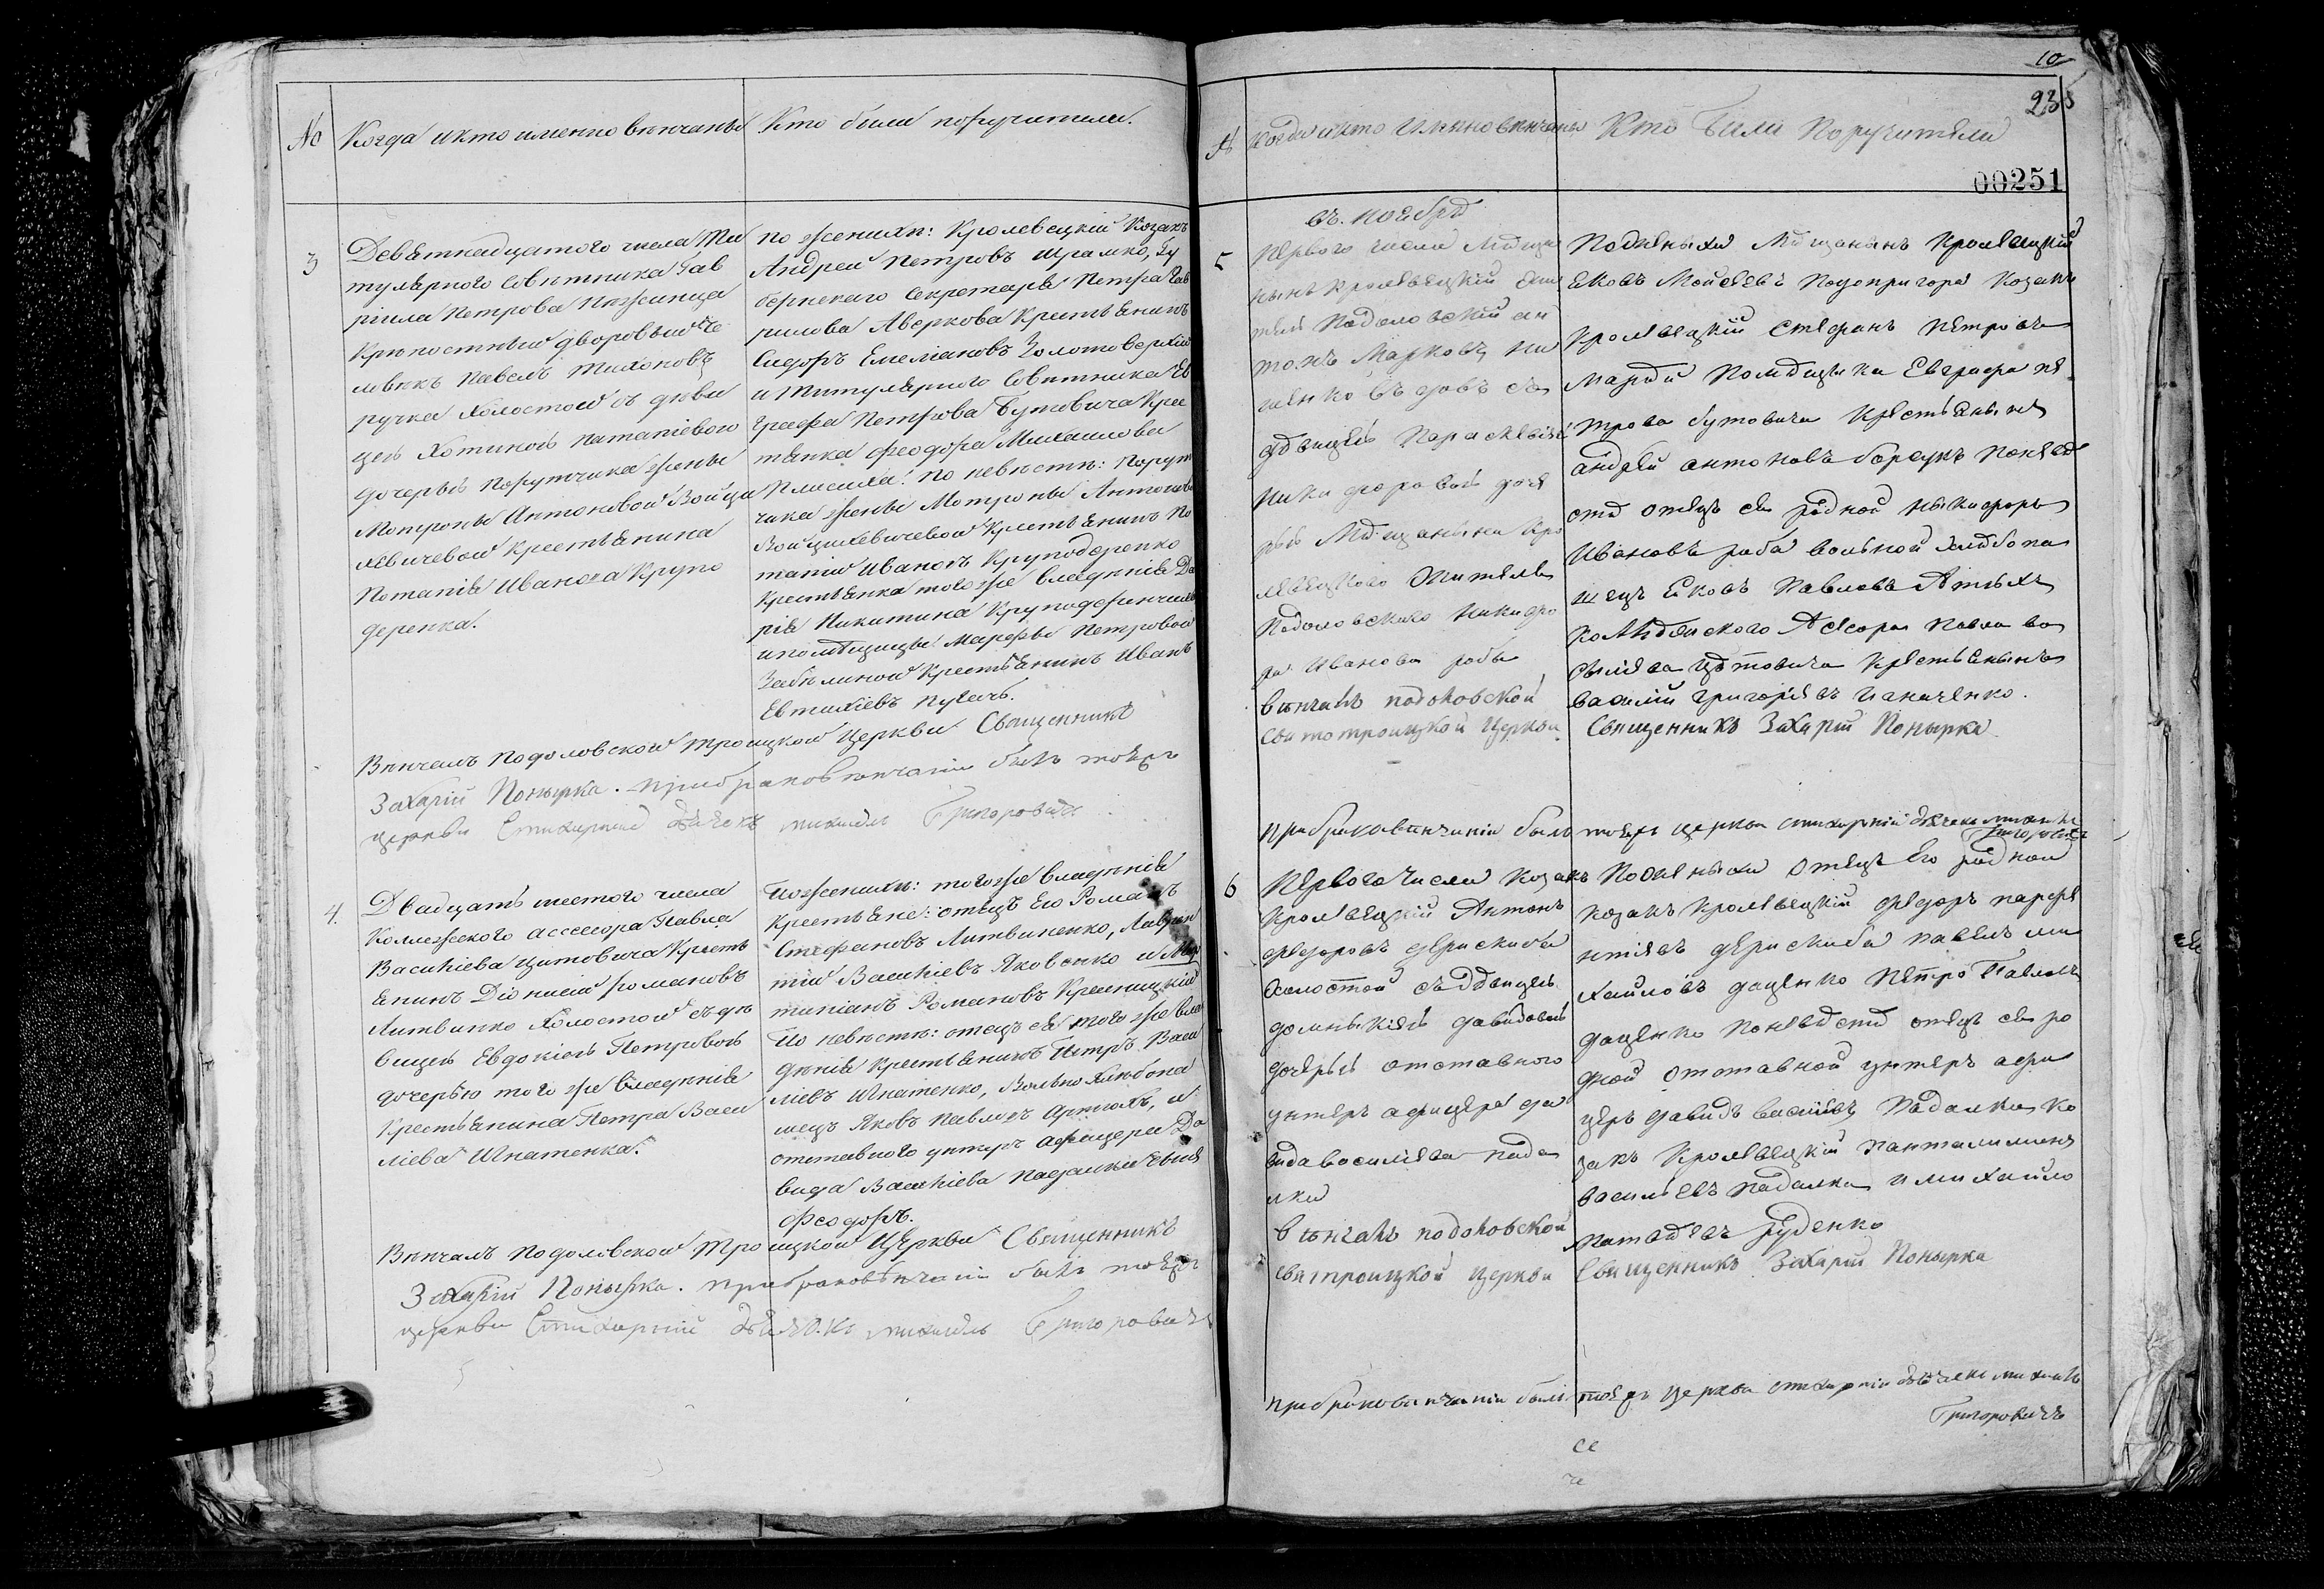 №
Когда и кто именно венчаны
Кто были поручители.
3
Девятнадцатого числа Ти
тулярного Советника Гав
ріила Петрова
Крепостный дворовый че
ловекъ Павелъ Тихоновъ
ручка холостой съ деви
цею Хотиною Патапіевою
дочерью порутчика жены
Мотроны Антоновой Войци
хевичевой Крестьянина
Потапія Иванова Крупо
деренка.
по женихе: Кролевецкій Козакъ
Андрей Петровъ Шрамко, Гу
бернскаго Секретаря Петра Гав
рилова Аверкова Крестьянинъ
Сидоръ Емеліановъ Золотоверхій
и Титулярного Советника Ев
графа Петрова Бутовича Крес
тянка Феодора Михаилова
по невесте: Порут
чика жены Мотроны Антоновы
Войцихевичевой Крестьянинъ По
тапій Ивановъ Круподеренко
Крестьянка того же владенія Да
рія Никитина
и помещицы Марфы Петровой
Забелиной Крестьянинъ Иванъ
Евтихіевъ Пугачъ.
Венчалъ Подоловской Троицкой Церкви Священникъ
Захарій Понырка. при браковенчаніи былъ тояжъ
церкви Стихарный дьячекъ михаилъ Григоровичъ
4.
Двадцать шестого числа
Коллежского ассесора Павла
Василіева Цитовича Кресть
янинъ Діонисій Романовъ
Литвинко холостой съ де
вицею Евдокіею Петровою
дочерью того же владенія
Крестьянина Петра Васи
ліева Игнатенка.
По женихе: того же владенія
Крестьяне: отецъ его Романъ
Стефановъ Литвиненко, Лаврен
тій Василіевъ Яковенко и Мар
тиніанъ Романовъ Красницкій
По невесте: отецъ ея того же вла
денія Крестьянинъ Петръ Васи
ліевъ Игнатенко, Вольно хлебопа
шецъ Яковъ Павловъ Артюхъ, и
отставного унтеръ афицера Да
вида Василіева Падалки сынъ
Феодоръ.
Венчалъ Подоловской Троицкой Церкви Священникъ
Захарій Понырка. при браковенчаніи былъ тояжъ
церкви Стихарный дьячекъ михаилъ Григоровичъ
10
235
00251
№
Когда и кто именно венчаны
Кто били Поручители
въ ноябре
5
Первого числа Меща
нинъ Кролевецкій жи
тель Подоловскій ан
тонъ Марковъ
въдовъ съ
вдовицею Параскевіею
Никифоровою доче
рью Мещанина Кро
левецкого Жителя
Подоловского Никифо
ра Иванова
венчалъ подоловской
Святотроицкой Церкви
По женихи Мещанинъ Кролевецкій
Яковъ Мойсеевъ Подопригора Козакъ
Кролевецкій Стефанъ Петровъ
Помещика Евграфа Пе
трова бутовича Крестьянинъ
андрей антоновъ борсукъ по неве
сте отецъ ея родной Никифоръ
Ивановъ вольной хлебопа
шецъ Яковъ Павловъ Артюхъ
Колежского Асесора Павла ва
силева Цитовича Крестьянинъ
василій григоріевъ
Священникъ Захарій Понырка
при браковенчаніи былъ тояжъ церкви стихарній дьячекъ михаилъ
Григоровичъ
6
Первого числа Козакъ
Кролевецкій Антонъ
Федоровъ Дерискиба
холостой съ девицею
домникіею давидовою
дочерью отставного
унтеръ афицера да
вида василіева пада
лки
венчалъ подоловской
святроицкой церкви
По жениху отецъ его родной
козакъ Кролевецкій федоръ парфе
нтіевъ дерискиба павелъ ми
хайловъ даценко Петро Павловъ
даценко По невесте отецъ ея ро
дной отставной унтеръ афи
церъ давидъ василіевъ Падалка ко
закъ Кролевецкій Панталимонъ
васильевъ падалка и михайло
матвеевъ руденко
Священникъ Захарій Понырка
при браковенчаніи былъ тояжъ церкви стихарній дьячекъ михаилъ
Григоровичъ